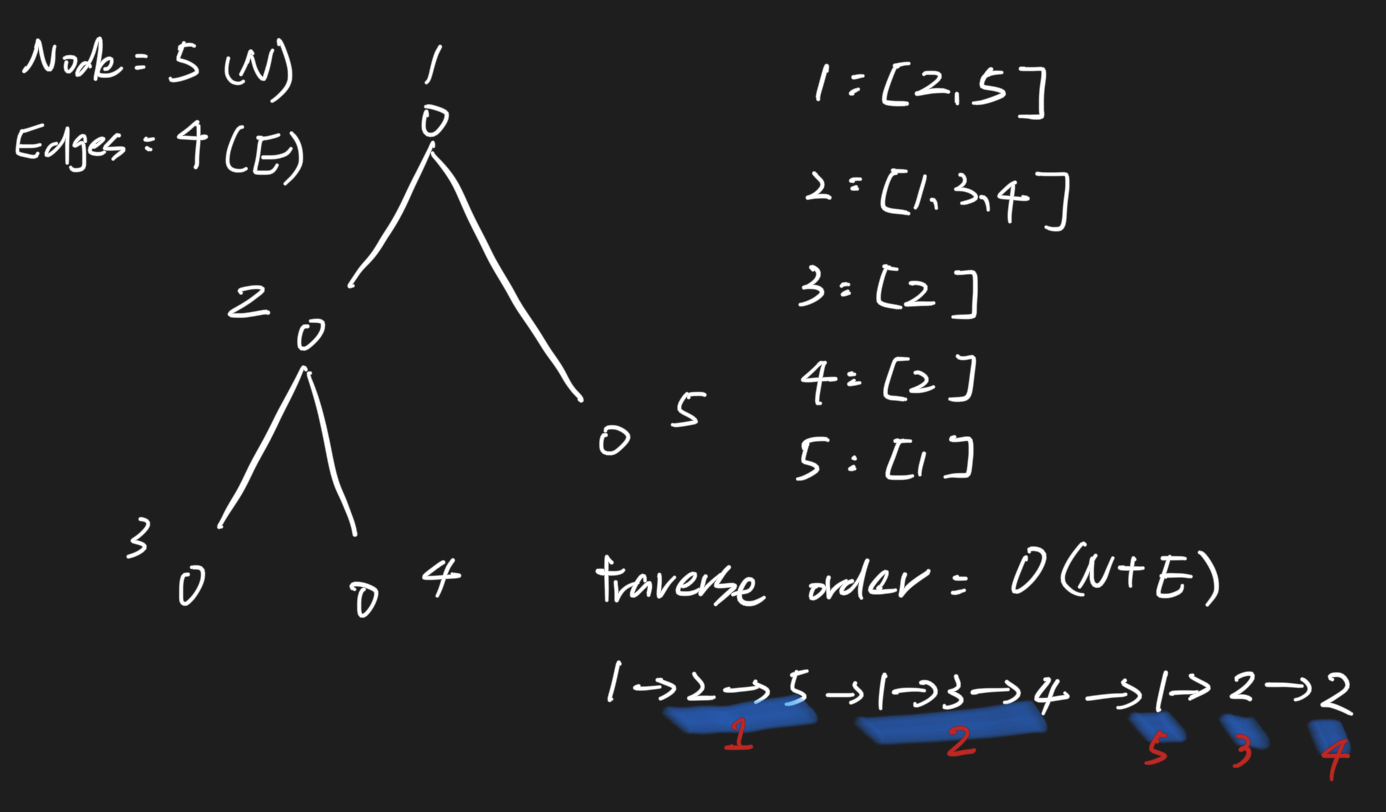 Node = 5 (N)
Edges = 4 (E)
1
0
2
0
0
5
3
0
0
4
1 = [2, 5]
2 = [1, 3, 4]
3 = [2]
4 = [2]
5 : [1]
traverse order = O(N+E)
1 → 2 → 5 → 1 → 3 → 4 → 1 → 2 → 2
1 2 5 3 4